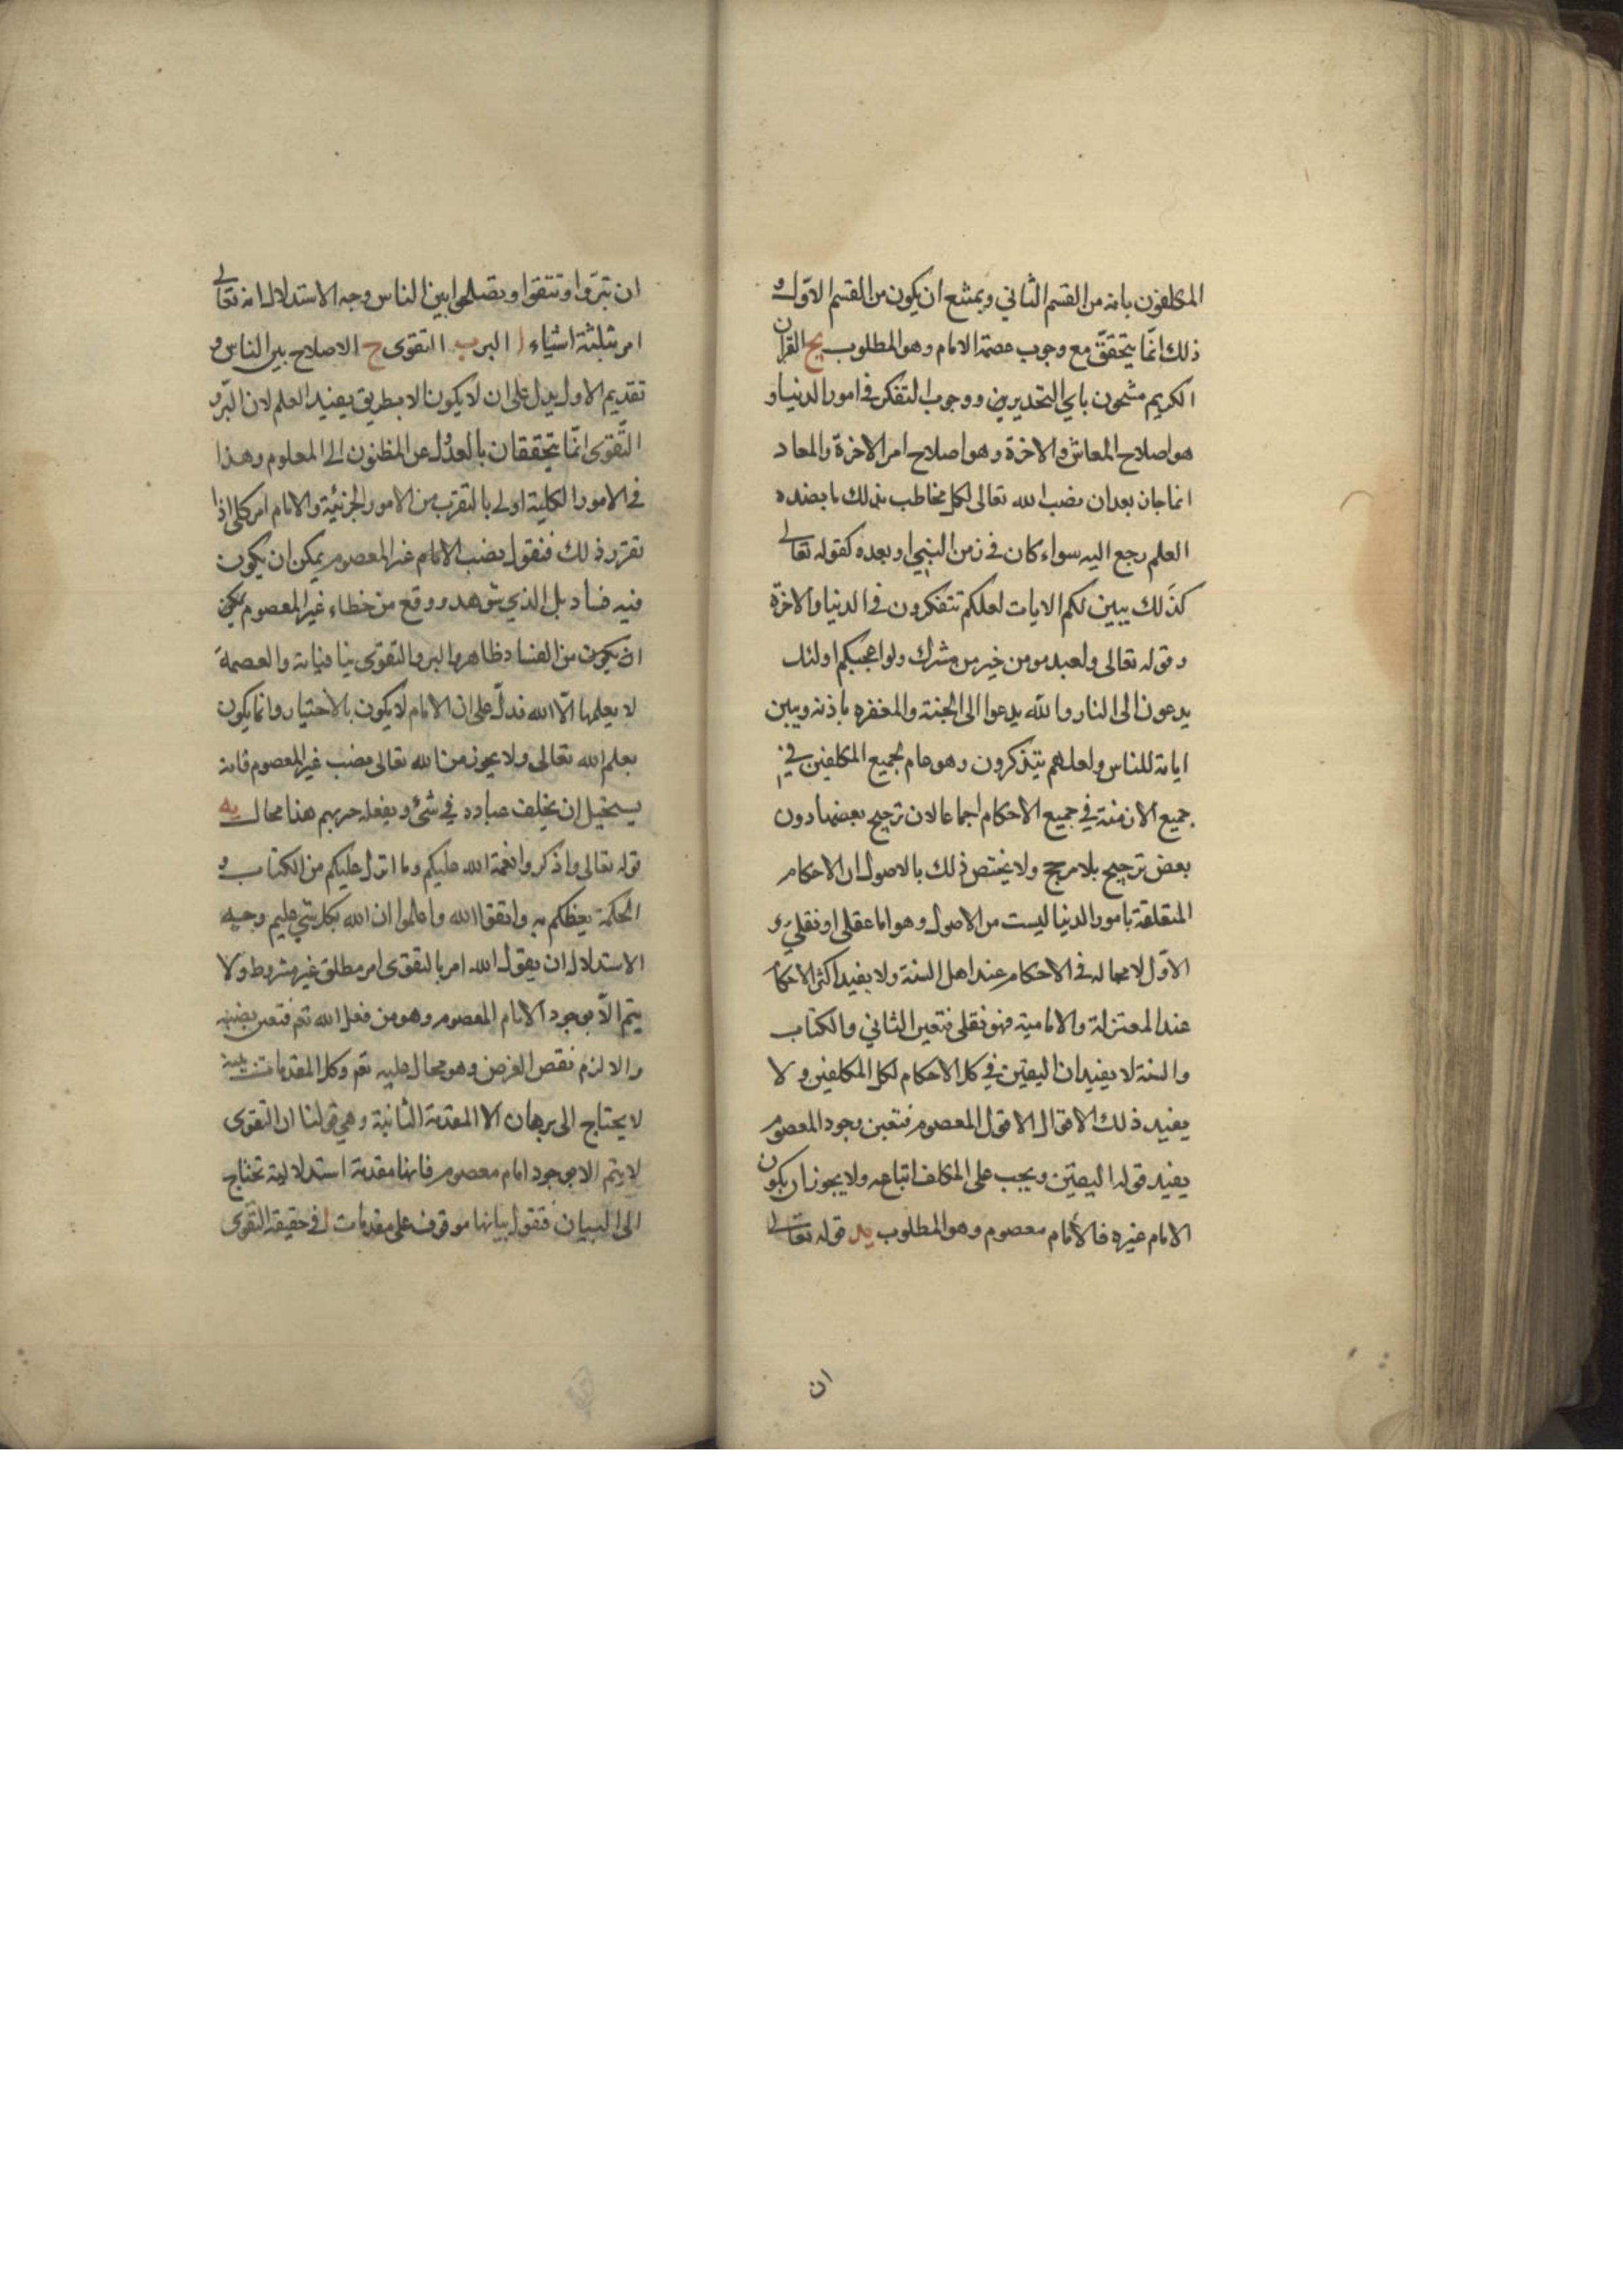 المكلفون بانه من القسم الثاني ويمتنع ان يكون من القسم الاول و
ذلك انما يتحقق مع وجوب عصمة الامام وهو المطلوب يج القران
الكريم مشحون باي التحذير ووجوب التفكر في امور الدنيا و
هو اصلاح المعاش والاخرة وهو اصلاح امر الاخرة والمعاد
انما جاز بعد ان نصب الله تعالى لكل مخاطب بذلك ما يفيده
العلم رجع اليه سواء كان في زمن النبي او بعده كقوله تعالى
كذلك يبين لكم الايات لعلكم تتفكرون في الدنيا والاخرة
وقوله تعالى ولعبد مومن خير من مشرك ولو اعجبكم اولئك
يدعون الى النار والله يدعوا الى الجنة والمغفره باذنه ويبين
اياته للناس ولعلهم يتذكرون وهو عام لجميع المكلفين في
جميع الازمنة في جميع الاحكام اجماعا لان ترجيح بعضها دون
بعض ترجيح بلا مرجح ولا يختص ذلك بالاصول ان الاحكام
المتعلقة بامور الدنيا ليست من الاصول وهو اما عقلي او نقلي و
الاول لا مجاله في الاحكام عند اهل السنة ولا يفيد اكثر الاحكام
عند المعتزلة والامامية فهو نقلي فتعين الثاني والكتاب
والسنة لا يفيدان اليقين في كل الاحكام لكل المكلفين ولا
يفيد ذلك الاقوال الا قول المعصوم فتعين وجود المعصوم
يفيد قوله اليقين ويجب على المكلف اتباعه ولا يجوز ان يكون
الامام غيره فالامام معصوم وهو المطلوب يد قوله تعالى
ان
ان تبروا وتتقوا وتصلحوا بين الناس وجه الاستدلال انه تعالى
امر بثلثة اشياء ا البر ب التقوى ج الاصلاح بين الناس و
تقديم الاول يدل على ان لا يكون الا بطريق يفيد العلم لان البر و
التقوى انما يتحققان بالعدول عن المظنون الى المعلوم وهذا
في الامور الكلية اولى بالتقرب من الامور الجزئية والامام امر كلي اذا
تقرر ذلك فنقول نصب الامام غير المعصوم يمكن ان يكون
فيه فساد بل الذي شوهد ووقع من خطاء غير المعصوم يمكن
ان يكون من الفساد ظاهر والبر والتقوى ينافيانه والعصمة
لا يعلمها الا الله فدل على ان الامام لا يكون بالاختيار وانما يكون
بعلم الله تعالى ولا يجوز من الله تعالى نصب غير المعصوم فانه
يستحيل ان يخلف عباده في شئ ويفعله هذا محال يه
قوله تعالى واذكروا نعمة الله عليكم وما انزل عليكم من الكتاب و
الحكمة يعظكم به واتقوا الله واعلموا ان الله بكل شي عليم وجه
الاستدلال ان يقول الله امر بالتقوى امر مطلق غير مشروط ولا
يتم الا بوجود الامام المعصوم وهو من فعل الله تعم فتعين نصبه
والا لزم نقص الغرض وهو محال عليه تعم وكل المقدمات بينة
لا يحتاج الى برهان الا المقدمة الثانية وهي قولنا ان التقوى
لا يتم الا بوجود امام معصوم فانها مقدمة استدلالية تحتاج
الى البيان فنقول بيانها موقوف على مقدمات ا في حقيقة التقوى